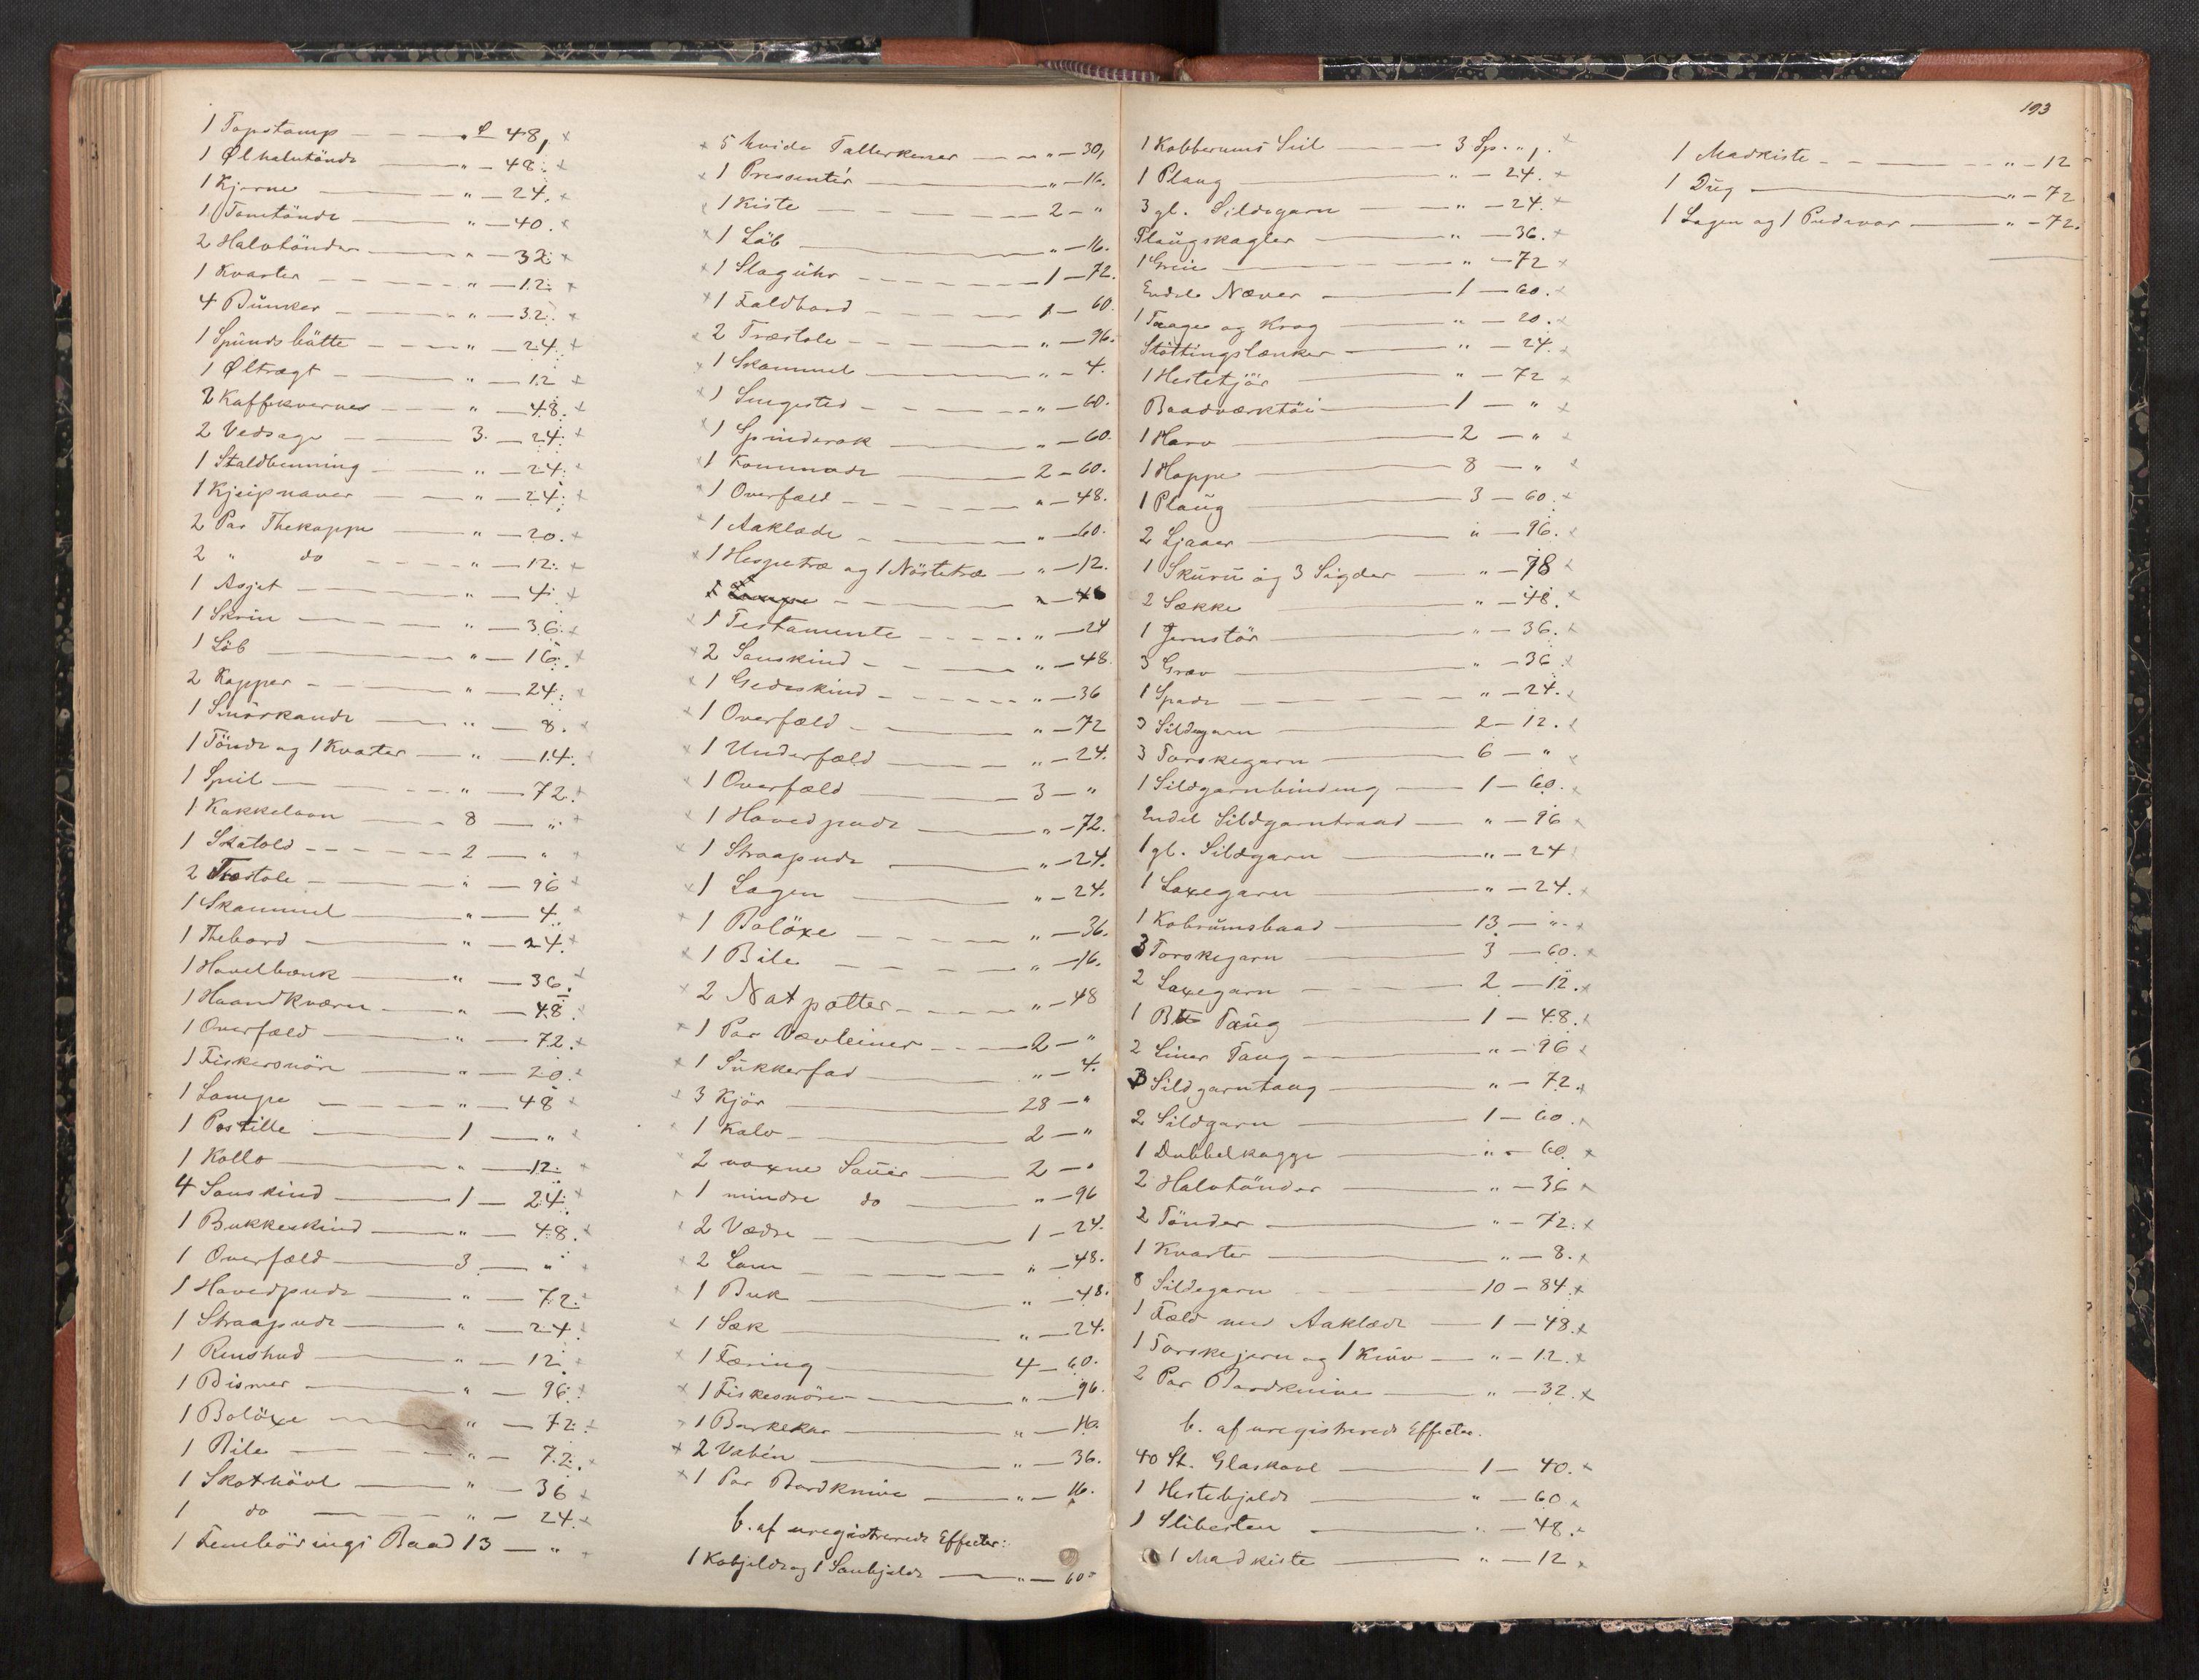 1 Tapstamp — " ß 48, x
1 Øl halvtönde — " — 48. x
1 Kjerne — " — 24. x
1 Tomtönde — " — 40. x
2 Halvtönder — " — 32. x
1 Kvarter — " — 12. x
4 Bunker — " — 32. x
1 Spunds bötte — " — 24. x
1 Øltragt — " — 12 x
2 Kaffekverner — " — 48. x
2 Vedsage — 3. — 24. x
1 Staldbenning — " — 24. x
1 Kjeipnaver — " — 24. x
2 Par Thekoppe — " — 20. x
2 " do — " — 12. x
1 Asjet — " — 4. x
1 Skrin — " — 36. x
1 Löb — " — 16. x
2 Kopper — " — 24. x
1 Smörkande — " — 8. x
1 Tönde og 1 Kvarter — " — 14. x
1 Speil — " — 72. x
1 Kakkelovn — 8 — " x
1 Skatold — 2 — " x
2 Træstole — " — 96 x
1 Skammel — " — 4. x
1 Thebord — " — 24. x
1 Havelbænk — " — 36. x
1 Haandkværn — " — 48. x
1 Overfæld — " — 72. x
1 Fiskersnöre — " — 20. x
1 Lampe — " — 48 x
1 Postille — 1 — " x
1 Kollo — " — 12. x
4 Sauskind — 1 — 24. x
1 Bukkeskind — " — 48. x
1 Overfæld — 3 — " x
1 Hovedpude — " — 72. x
1 Straapude — " — 24. x
1 Renshud — " — 12. x
1 Bismer — " — 96. x
1 Bolöxe — " — 72. x
1 Bile — " — 72. x
1 Skothövl — " — 36 x
1 do — " — 24. x
1 Fembörings Baad 13 — " x
x 5 hvide Tallerkener — " — 30,
x 1 Presentér — " — 16.
x 1 Kiste — 2 — "
x 1 Löb — " — 16.
x 1 Slaguhr — 1 — 72.
x 1 Faldbord — 1 — 60.
x 2 Træstole — " — 96.
x 1 Skammel — " — 4.
x 1 Sengested — " — 60.
x 1 Spinderok — " — 60.
x 1 Kommode — 2 — 60.
x 1 Overfæld — " — 48.
x 1 Aaklæde — " — 60.
x 1 Hespetræ og 1 Nöstetræ — " — 12.
1 Lampe — " — 48
x 1 Testamente — " — 24
x 2 Sauskind — " — 48.
x 1 Gedeskind — " — 36
x 1 Overfæld — " — 72
x 1 Underfæld — " — 24.
x 1 Overfæld — 3 — "
x 1 Hovedpude — " — 72.
x 1 Straapude — " — 24.
x 1 Lagen — " — 24.
x 1 Bolöxe — " — 36.
x 1 Bile — " — 16.
x 2 Natpotter — " — 48
x 1 Par Vævleiner — 2 — "
x 1 Sukkerfad — " — 4.
x 3 Kjör — 28 — "
x 1 Kalv — 2 — "
x 2 voxne Sauer — 2 — "
x 1 mindre do — " — 96
x 2 Vædre — 1 — 24.
x 2 Lam — " — 48.
x 1 Buk — " — 48.
x 1 Sæk — " — 24.
x 1 Færing — 4 — 60.
x 1 Fiskesnöre — " — 96.
x 1 Barkekar — " — 16.
x 2 Vabén — " — 36.
x 1 Par Bordknive — " — 16.
b. af uregistrerede Effecter:
1 Kobjelde og 1 Saubjelde — " — 60
193
1 Kobberums Seil — 3 Sp. " ,. x
1 Plaug — " — 24. x
3 gl. Sildegarn — " — 24. x
Plaugskagler — " — 36. x
1 Greie — " — 72 x
Endel Næver — 1 — 60. x
1 Trage og Krog — " — 20. x
Stöttingslænker — " — 24. x
1 Hestetjör — " — 72 x
Baadværktöi — 1 — " x
1 Harv — 2 — " x
1 Hoppe — 8 — " x
1 Plaug — 3 — 60. x
2 Ljaaer — " — 96. x
1 Skuru og 3 Sigder — " — 78 x
2 Sække — " — 48. x
1 Jernstör — " — 36. x
3 Grev — " — 36 x
1 Spade — " — 24. x
3 Sildegarn — 2 — 12. x
3 Torskegarn — 6 — " x
1 Sildgarnbinding — 1 — 60. x
Endel Sildgarntraad — " — 96 x
1 gl. Sildgarn — " — 24
1 Laxegarn — " — 24. x
1 Kobrumsbaad — 13 — " x
3 Torskegarn — 3 — 60. x
2 Laxegarn — 2 — 12. x
1 Bt Taug — 1 — 48. x
2 Liner Taug — " — 96 x
3 Sildgarntaug — " — 72. x
2 Sildgarn — 1 — 60. x
1 Dubbelkagge — " — 60. x
2 Halvtönder — " — 36 x
2 Tönder — " — 72. x
1 Kvarter — " — 8. x
8 Sildegarn — 10 — 84. x
1 Fæld med Aaklæde — 1 — 48. x
1 Torskejern og 1 Kniv — " — 12. x
2 Par Bordknive — " — 32. x
b. af uregistrerede Effecter.
40 St. Glaskavl — 1 — 40. x
1 Hestebjelde — " — 60. x
1 Slibesten — " — 48. x
1 Madkiste — " — 12 x
1 Madkiste — " — 12
1 Dug — " — 72
1 Lagen og 1 Pudevar — " — 72.